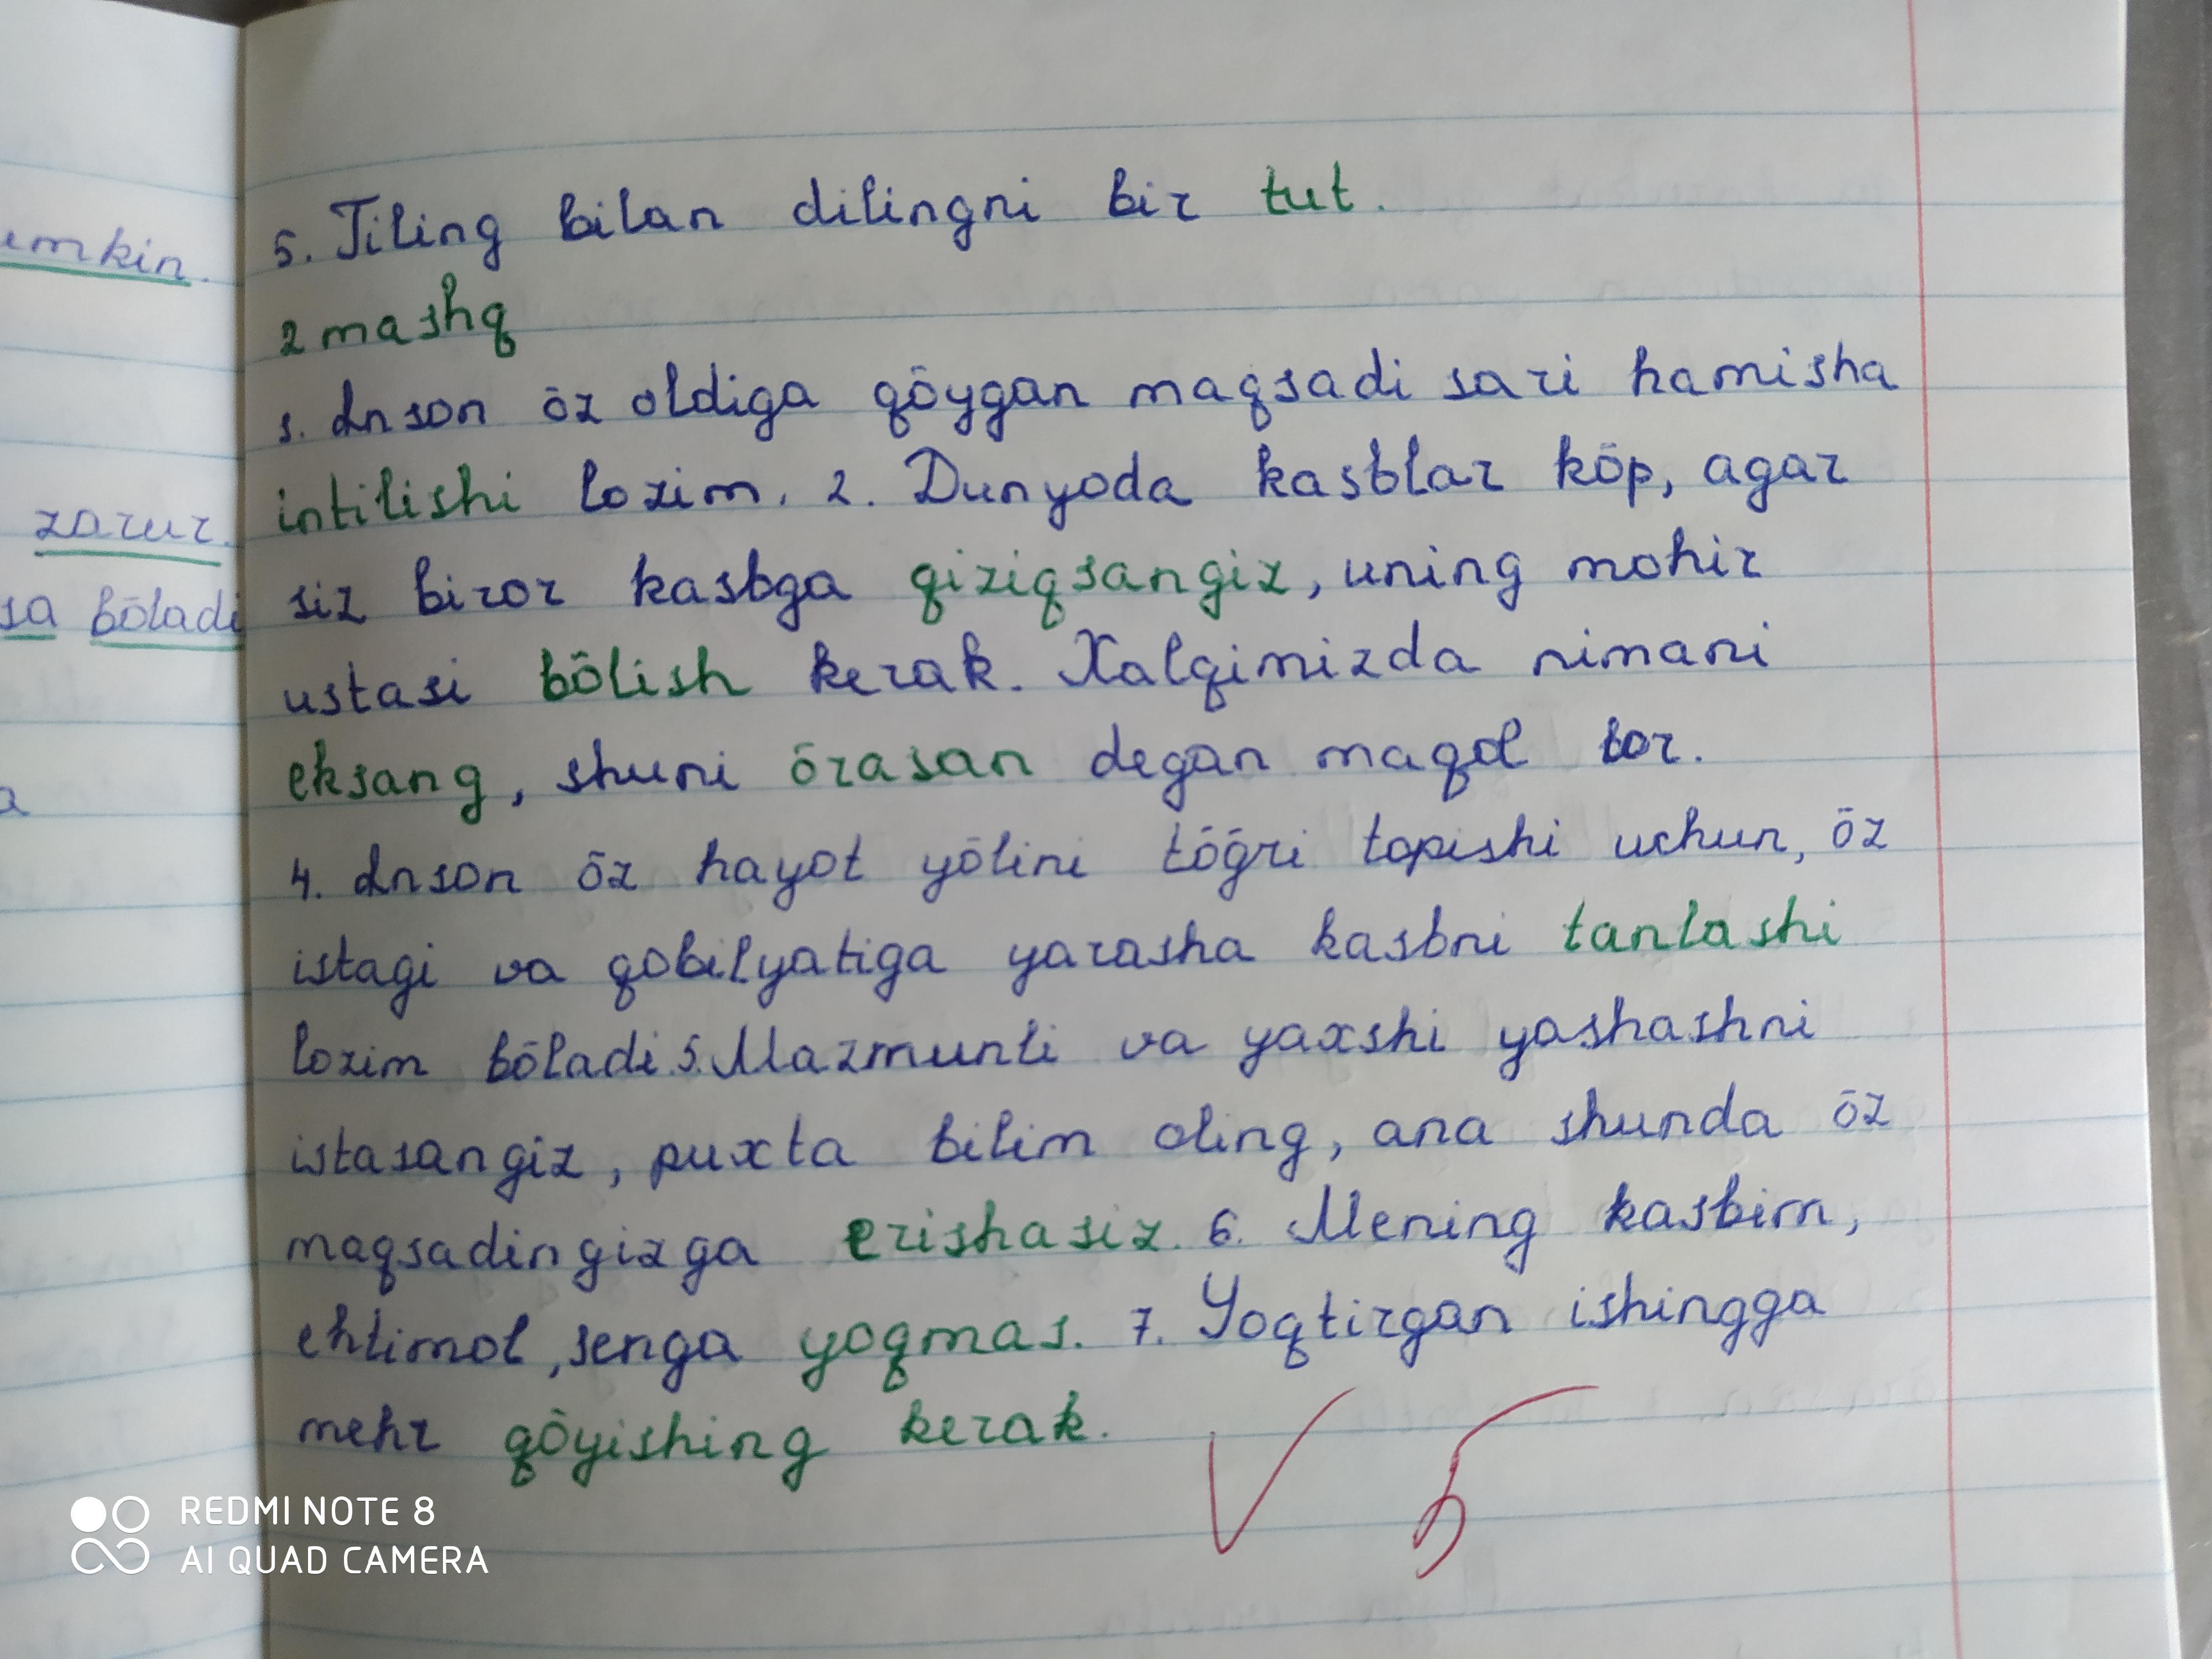 emkin.
zarur.
sa bōladi
a
5. Tiling bilan dilingni bir tut.
2 mashq
1. Inson ōz oldiga qōygan maqsadi sari hamisha
intilishi lozim. 2. Dunyoda kasblar kōp, agar
siz biror kasbga qiziqsangiz, uning mohir
ustasi bōlish kerak. Xalqimizda nimani
eksang, shuni ōrasan degan maqol bor.
4. Inson ōz hayot yōlini tōḡri topishi uchun, ōz
istagi va qobilyatiga yarasha kasbni tanlashi
lozim bōladi. 5. Mazmunli va yaxshi yashashni
istasangiz, puxta bilim oling, ana shunda ōz
maqsadingizga erishasiz. 6. Mening kasbim,
ehtimol, senga yoqmas. 7. Yoqtirgan ishingga
mehr qōyishing kerak.
5
REDMI NOTE 8
AI QUAD CAMERA